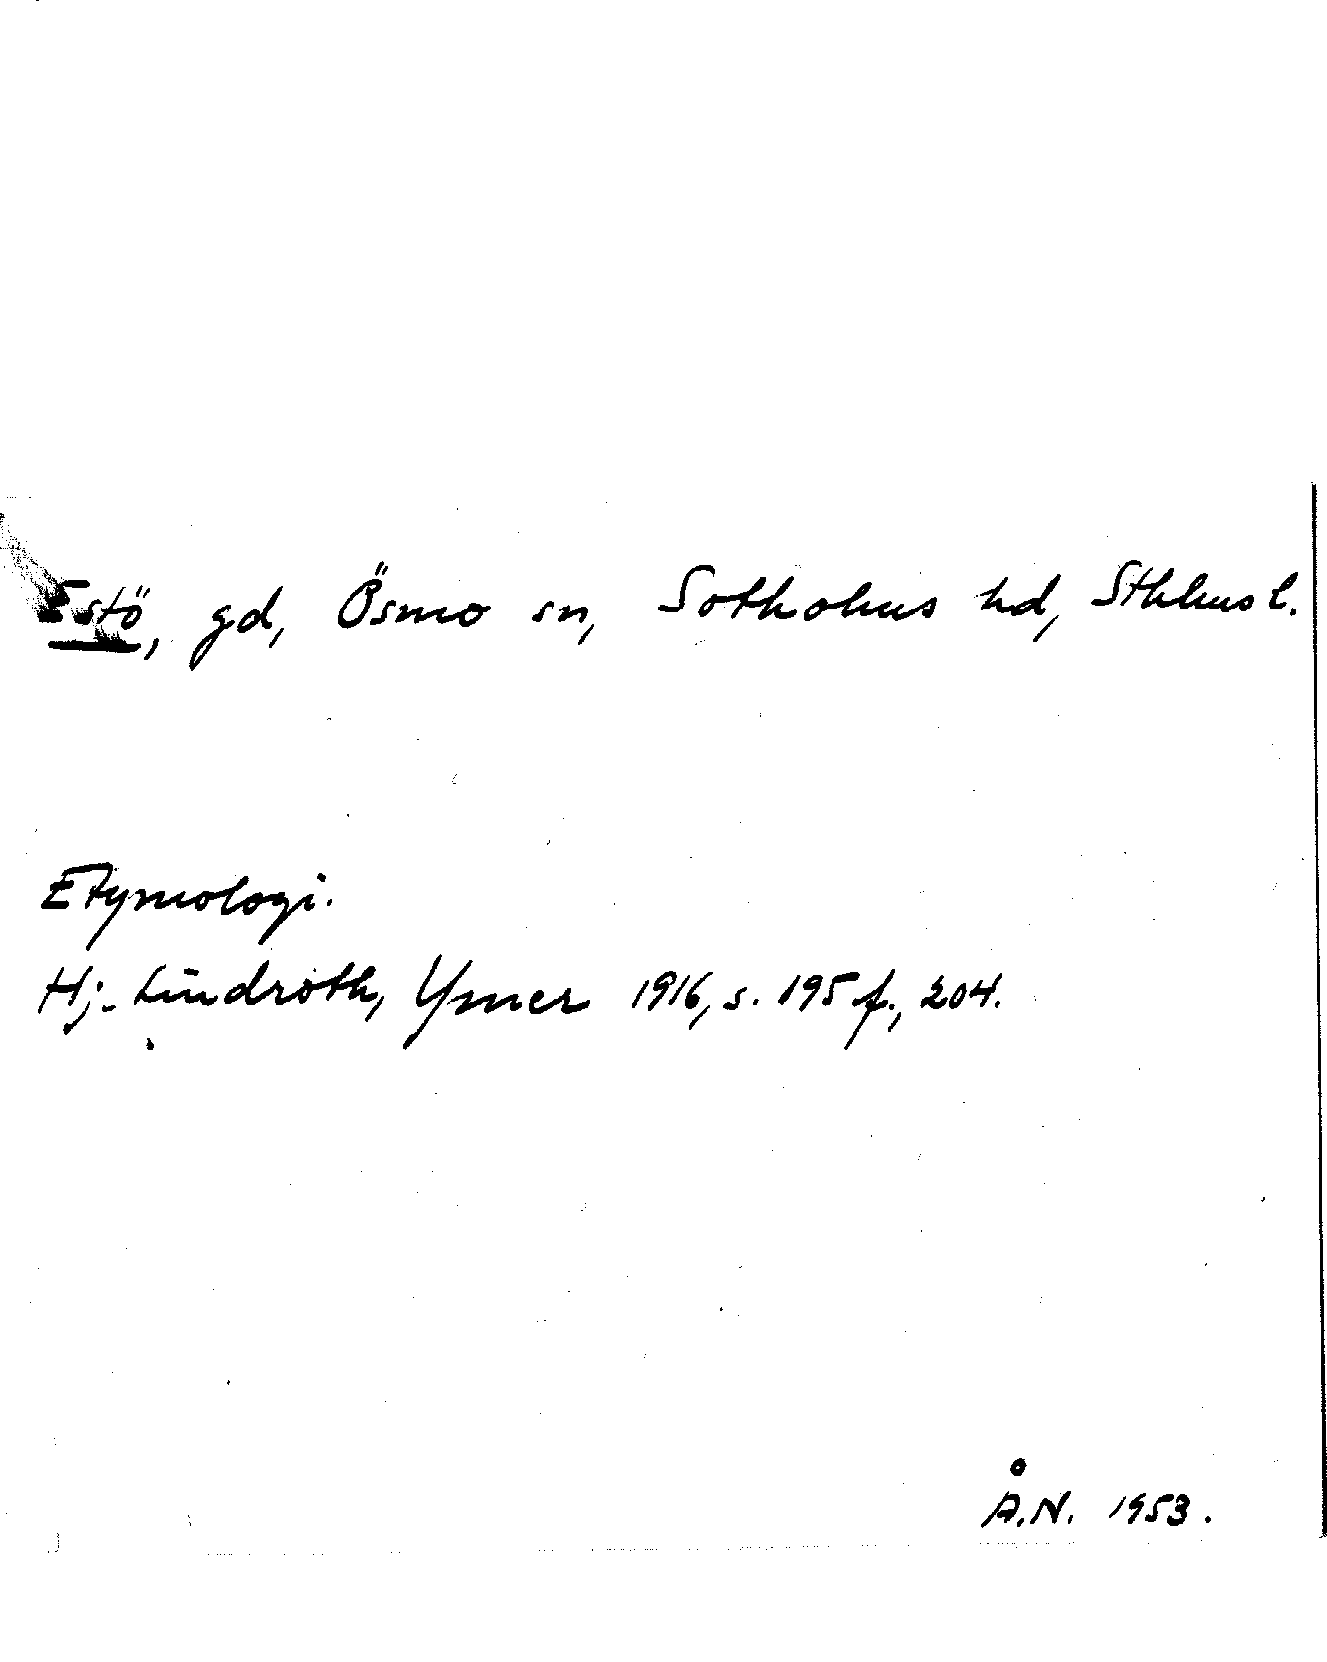 Estö, gd, Ösmo sn, Sotholms hd, Sthlms l.
Etymologi.
Hj. Lindroth, Ymer 1916, s. 195 f., 204.
Å.N. 1953.